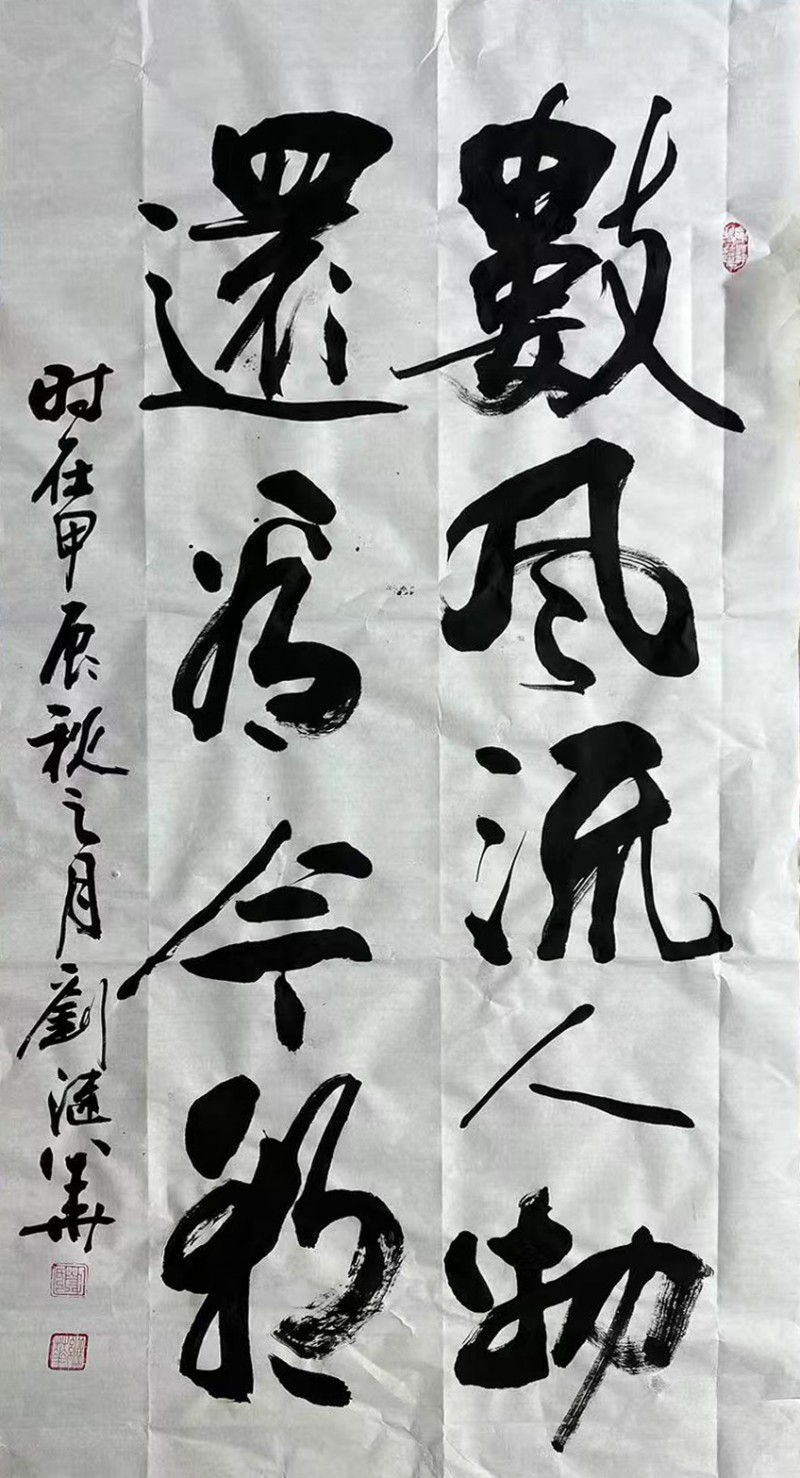 數風流人物
還看今朝
时在甲辰秋之月劉漣華